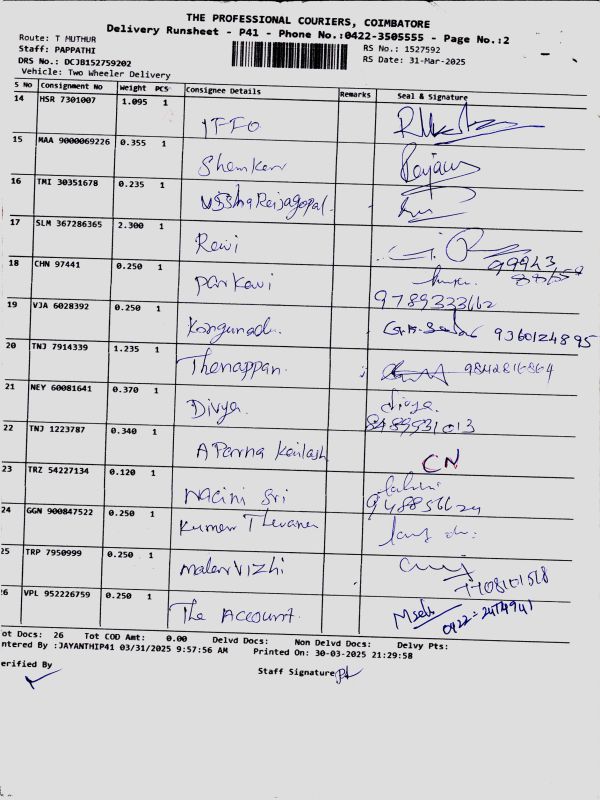 THE PROFESSIONAL COURIERS, COIMBATORE
Delivery Runsheet - P41 - Phone No.:0422-3505555 - Page No.:2
Route: T MUTHUR
RS No.: 1527592
Staff: PAPPATHI
RS Date: 31-Mar-2025
DRS No.: DCJB152759202
Vehicle: Two Wheeler Delivery
S No Consignment No Weight PCS Consignee Details Remarks Seal & Signature
14 HSR 7301007 1.095 1 IFFO
15 MAA 9000069226 0.355 1 Shenkar
16 TMI 30351678 0.235 1
17 SLM 367286365 2.300 1 Revi
18 CHN 97441 0.250 1 Parkavi 9789333662
19 VJA 6028392 0.250 1 Kongunad. 9360124895
20 TNJ 7914339 1.235 1 Thenappan.
21 NEY 60081641 0.370 1 Divya. divya. 8489931013
22 TNJ 1223787 0.340 1 Aparna Kailash CN
23 TRZ 54227134 0.120 1 Nacini Sri
24 GGN 900847522 0.250 1 Kumar
25 TRP 7950999 0.250 1 Malarvizhi
26 VPL 952226759 0.250 1 The Account.
ot Docs: 26 Tot COD Amt: 0.00 Delvd Docs: Non Delvd Docs: Delvy Pts:
ntered By :JAYANTHIP41 03/31/2025 9:57:56 AM Printed On: 30-03-2025 21:29:58
erified By Staff Signature